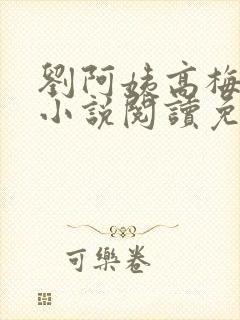 劉阿姨高梅
小說閱讀免
可樂卷